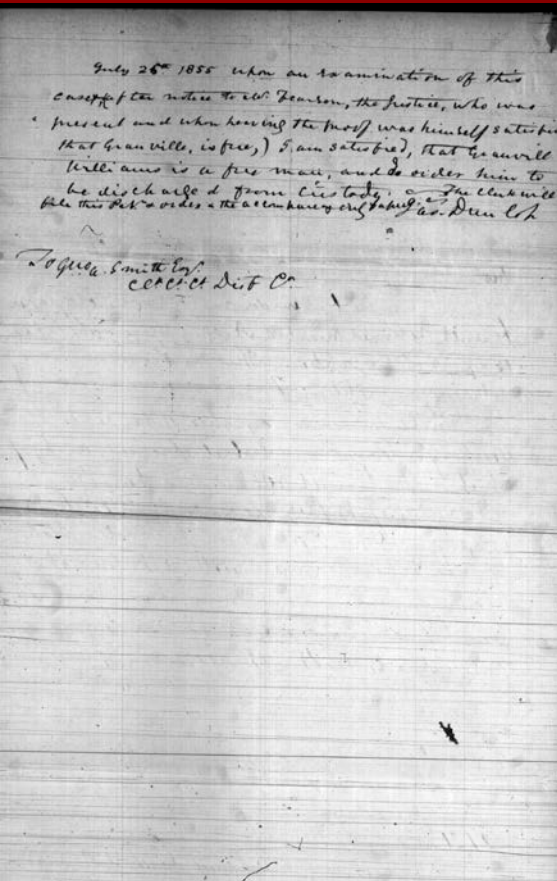 July 26th 1855 upon an examination of this
case, (after notice to Mr. Pearson, the Justice, who was
present and upon hearing the proof was himself satisfi
that Granville, is free,) I am satisfied, that Granvill
Williams is a free man, and do order him to
be discharged from custody. The Clerk will
file this Pet & order & the accompanying
Jas. Dunlop
To Smith Esqr.
Clk Ct. Ct Dist Ca